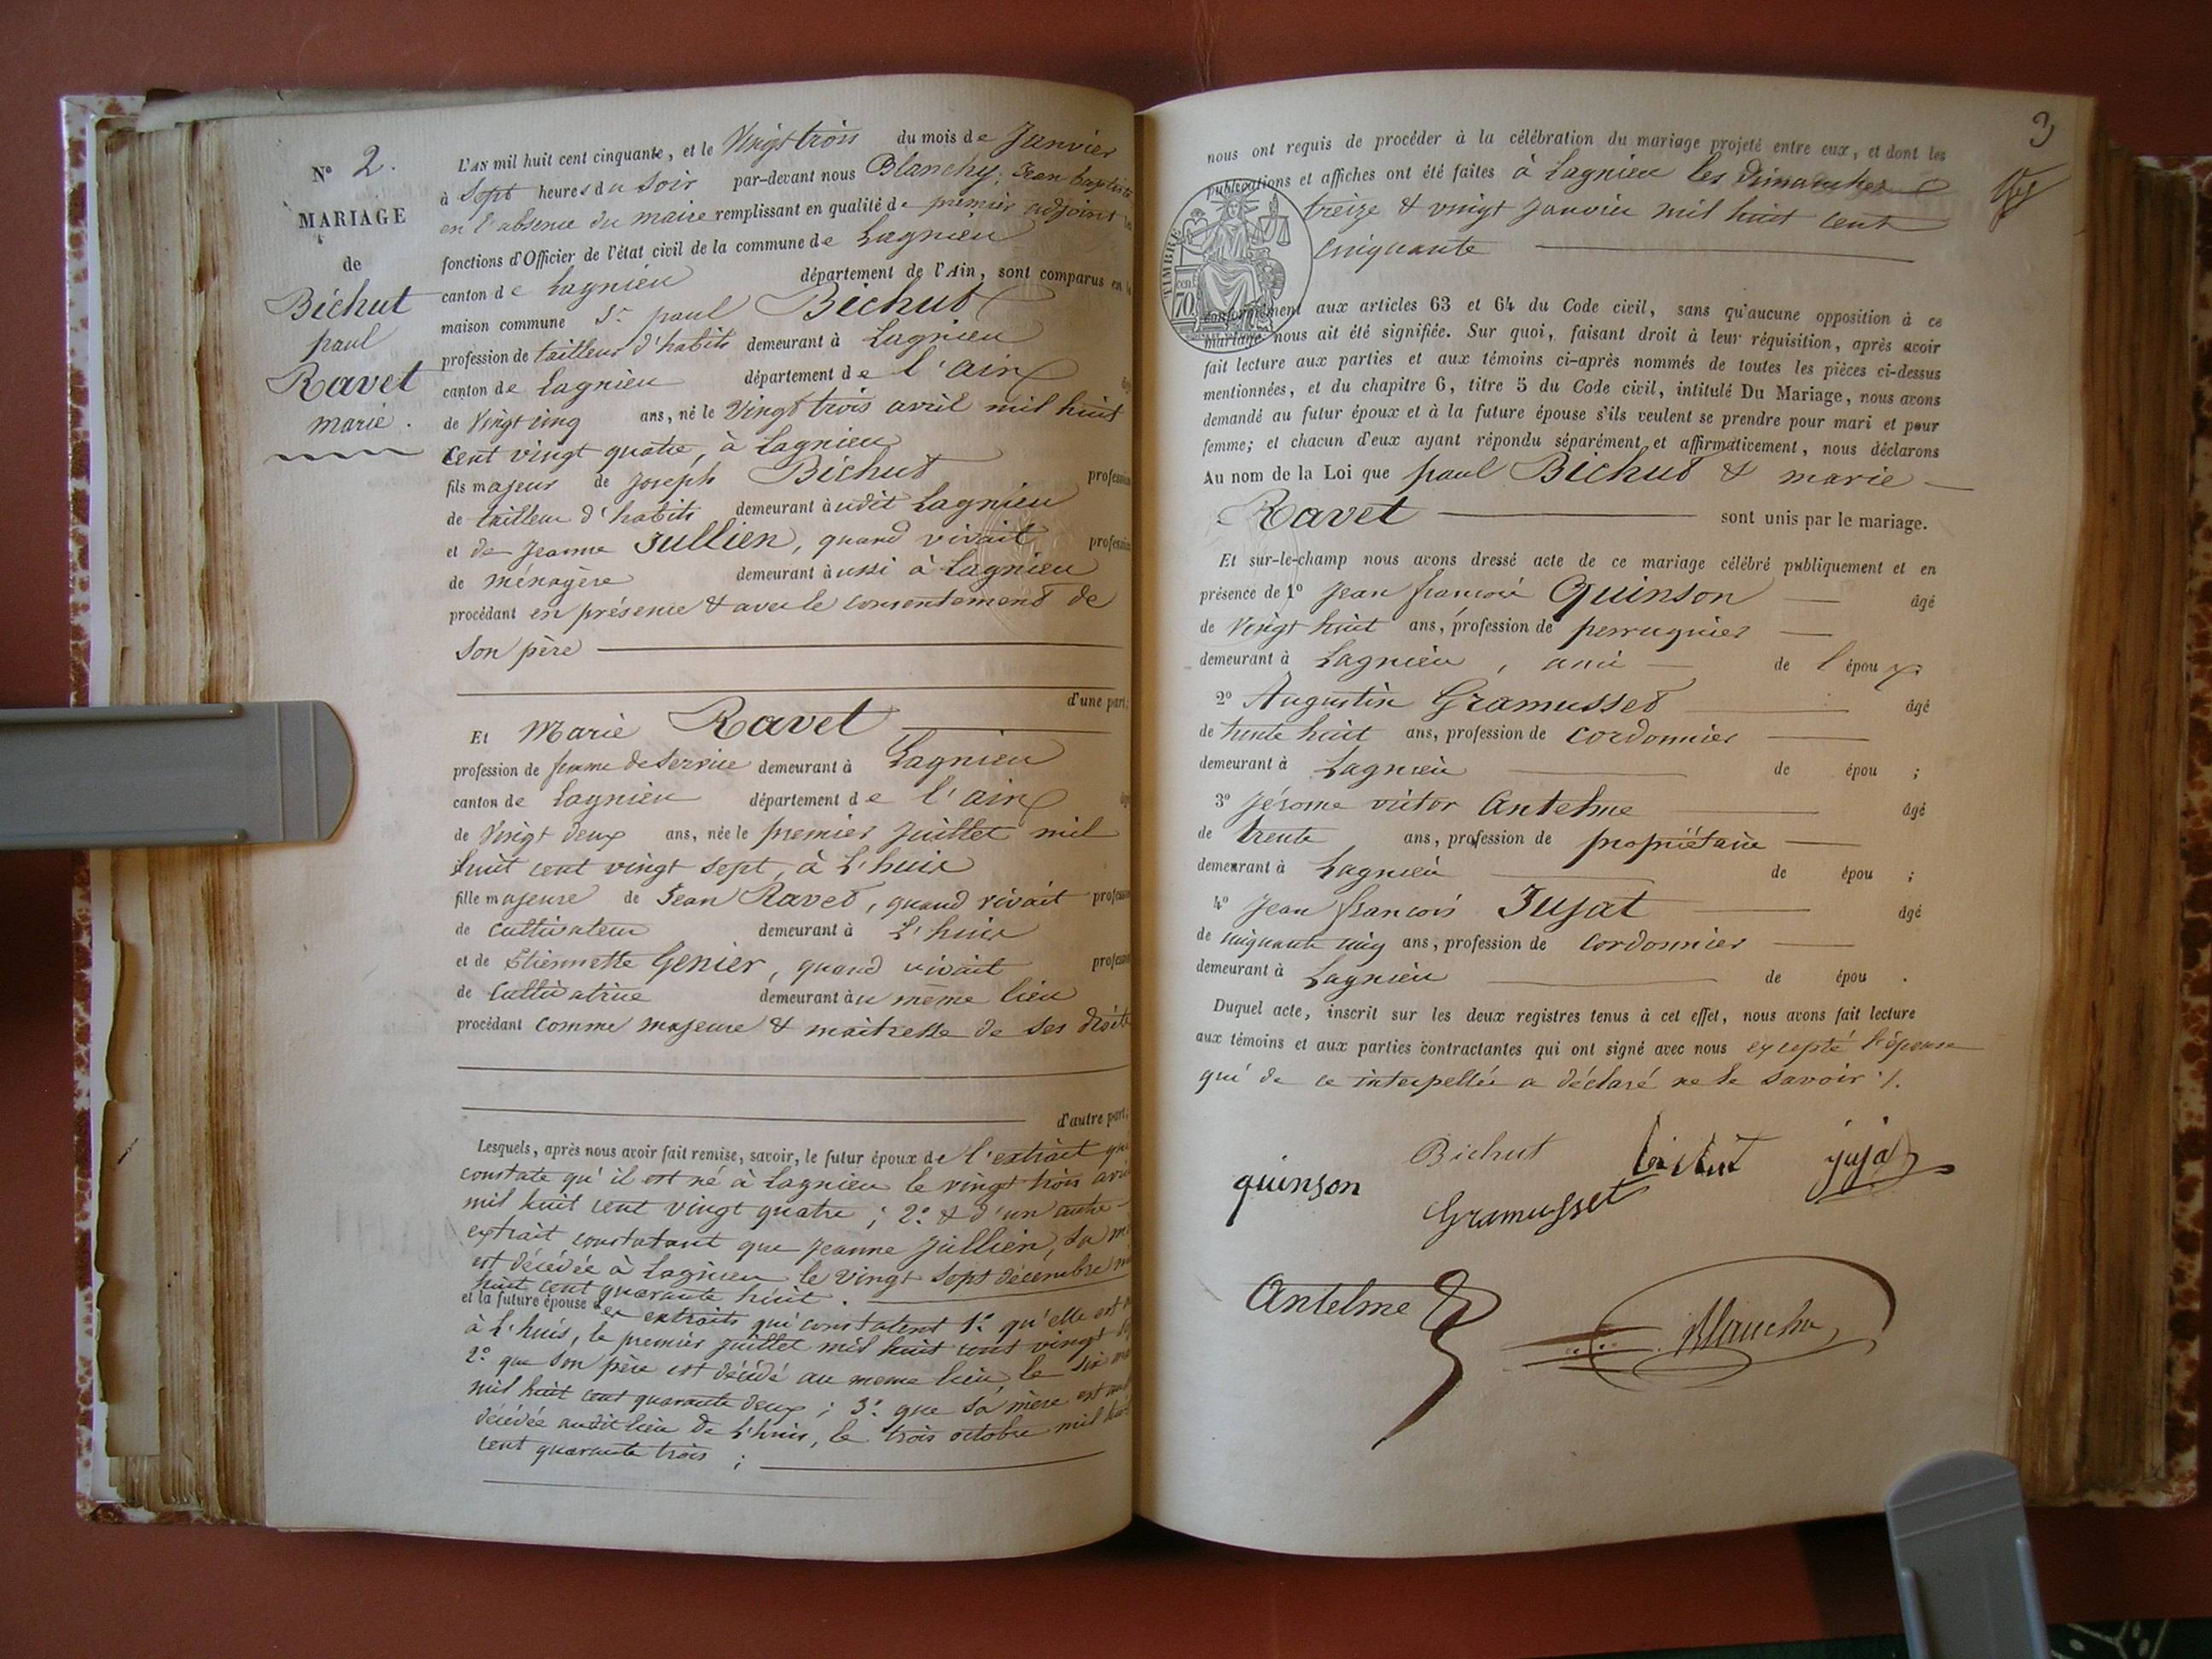 N° 2.
MARIAGE
de
Bichut
paul
Ravet
marie.
L'AN mil huit cent cinquante, et le Vingt trois du mois de Janvier
à Sept heures du Soir par-devant nous Blanchy, Jean baptiste
en l'absence du maire remplissant en qualité de premier adjoint
fonctions d'Officier de l'état civil de la commune de Lagnieu
canton de Lagnieu département de l'Ain, sont comparus en
maison commune Sr paul Bichut
profession de tailleur d'habits demeurant à Lagnieu
canton de Lagnieu département de l'ain
de Vingt cinq ans, né le Vingt trois avril mil huit
Cent vingt quatre, à Lagnieu
fils majeur de Joseph Bichut profession
de tailleur d'habits demeurant àudit Lagnieu
et de Jeanne Jullien, quand vivait profession
de ménagère demeurant àussi à Lagnieu
procédant en présence & avec le consentement de
Son père
d'une part;
Et Marie Ravet
profession de femme de service demeurant à Lagnieu
canton de Lagnieu département de l'ain
de Vingt deux ans, née le premier Juillet mil
huit cent vingt sept, à L'huis
fille majeure de Jean Ravet, quand vivait profession
de cultivateur demeurant à L'huis
et de Etiennette Genier, quand vivait profession
de Cultivatrice demeurant àu même lieu
procédant comme majeure & maîtresse de ses droits
d'autre part;
Lesquels, après nous avoir fait remise, savoir, le futur époux de l'extrait qui
constate qu'il est né à Lagnieu le vingt trois avril
mil huit cent vingt quatre; 2° & d'un autre
extrait constatant que Jeanne Jullien, sa
est décédée à Lagnieu le Vingt Sept décembre
huit cent quarante huit.
et la future épouse extraits qui constatent 1° qu'elle est
à L'huis, le premier juillet mil huit cent vingt
2° que Son père est décédé au meme lieu, le six
mil huit cent quarante deux; 3° que sa mère est
décédée audit lieu de L'huis, le trois octobre mil
cent quarante trois;
3
nous ont requis de procéder à la célébration du mariage projeté entre eux, et dont les
publications et affiches ont été faites à Lagnieu les Dimanches
treize & vingt Janvier mil huit cent
cinquante
TIMBRE
70
conformément aux articles 63 et 64 du Code civil, sans qu'aucune opposition à ce
mariage nous ait été signifiée. Sur quoi, faisant droit à leur réquisition, après avoir
fait lecture aux parties et aux témoins ci-après nommés de toutes les pièces ci-dessus
mentionnées, et du chapitre 6, titre 5 du Code civil, intitulé Du Mariage, nous avons
demandé au futur époux et à la future épouse s'ils veulent se prendre pour mari et pour
femme; et chacun d'eux ayant répondu séparément et affirmativement, nous déclarons
Au nom de la Loi que paul Bichut & marie
Ravet sont unis par le mariage.
Et sur-le-champ nous avons dressé acte de ce mariage célébré publiquement et en
présence de 1° Jean francois Quinson âgé
de Vingt huit ans, profession de perruquier
demeurant à Lagnieu, ami de l'époux;
2° Augustin Gramusset âgé
de trente huit ans, profession de cordonnier
demeurant à Lagnieu de épou ;
3° Jérome victor Antelme âgé
de trente ans, profession de propriétaire
demeurant à Lagnieu de épou ;
4° Jean francois Jujat âgé
de cinquante cinq ans, profession de cordonnier
demeurant à Lagnieu de épou .
Duquel acte, inscrit sur les deux registres tenus à cet effet, nous avons fait lecture
aux témoins et aux parties contractantes qui ont signé avec nous excepté l'épouse
qui de ce interpellée a déclaré ne le savoir ./.
Bichut bichut jujat
quinson
Gramusset
Antelme
Blanchy